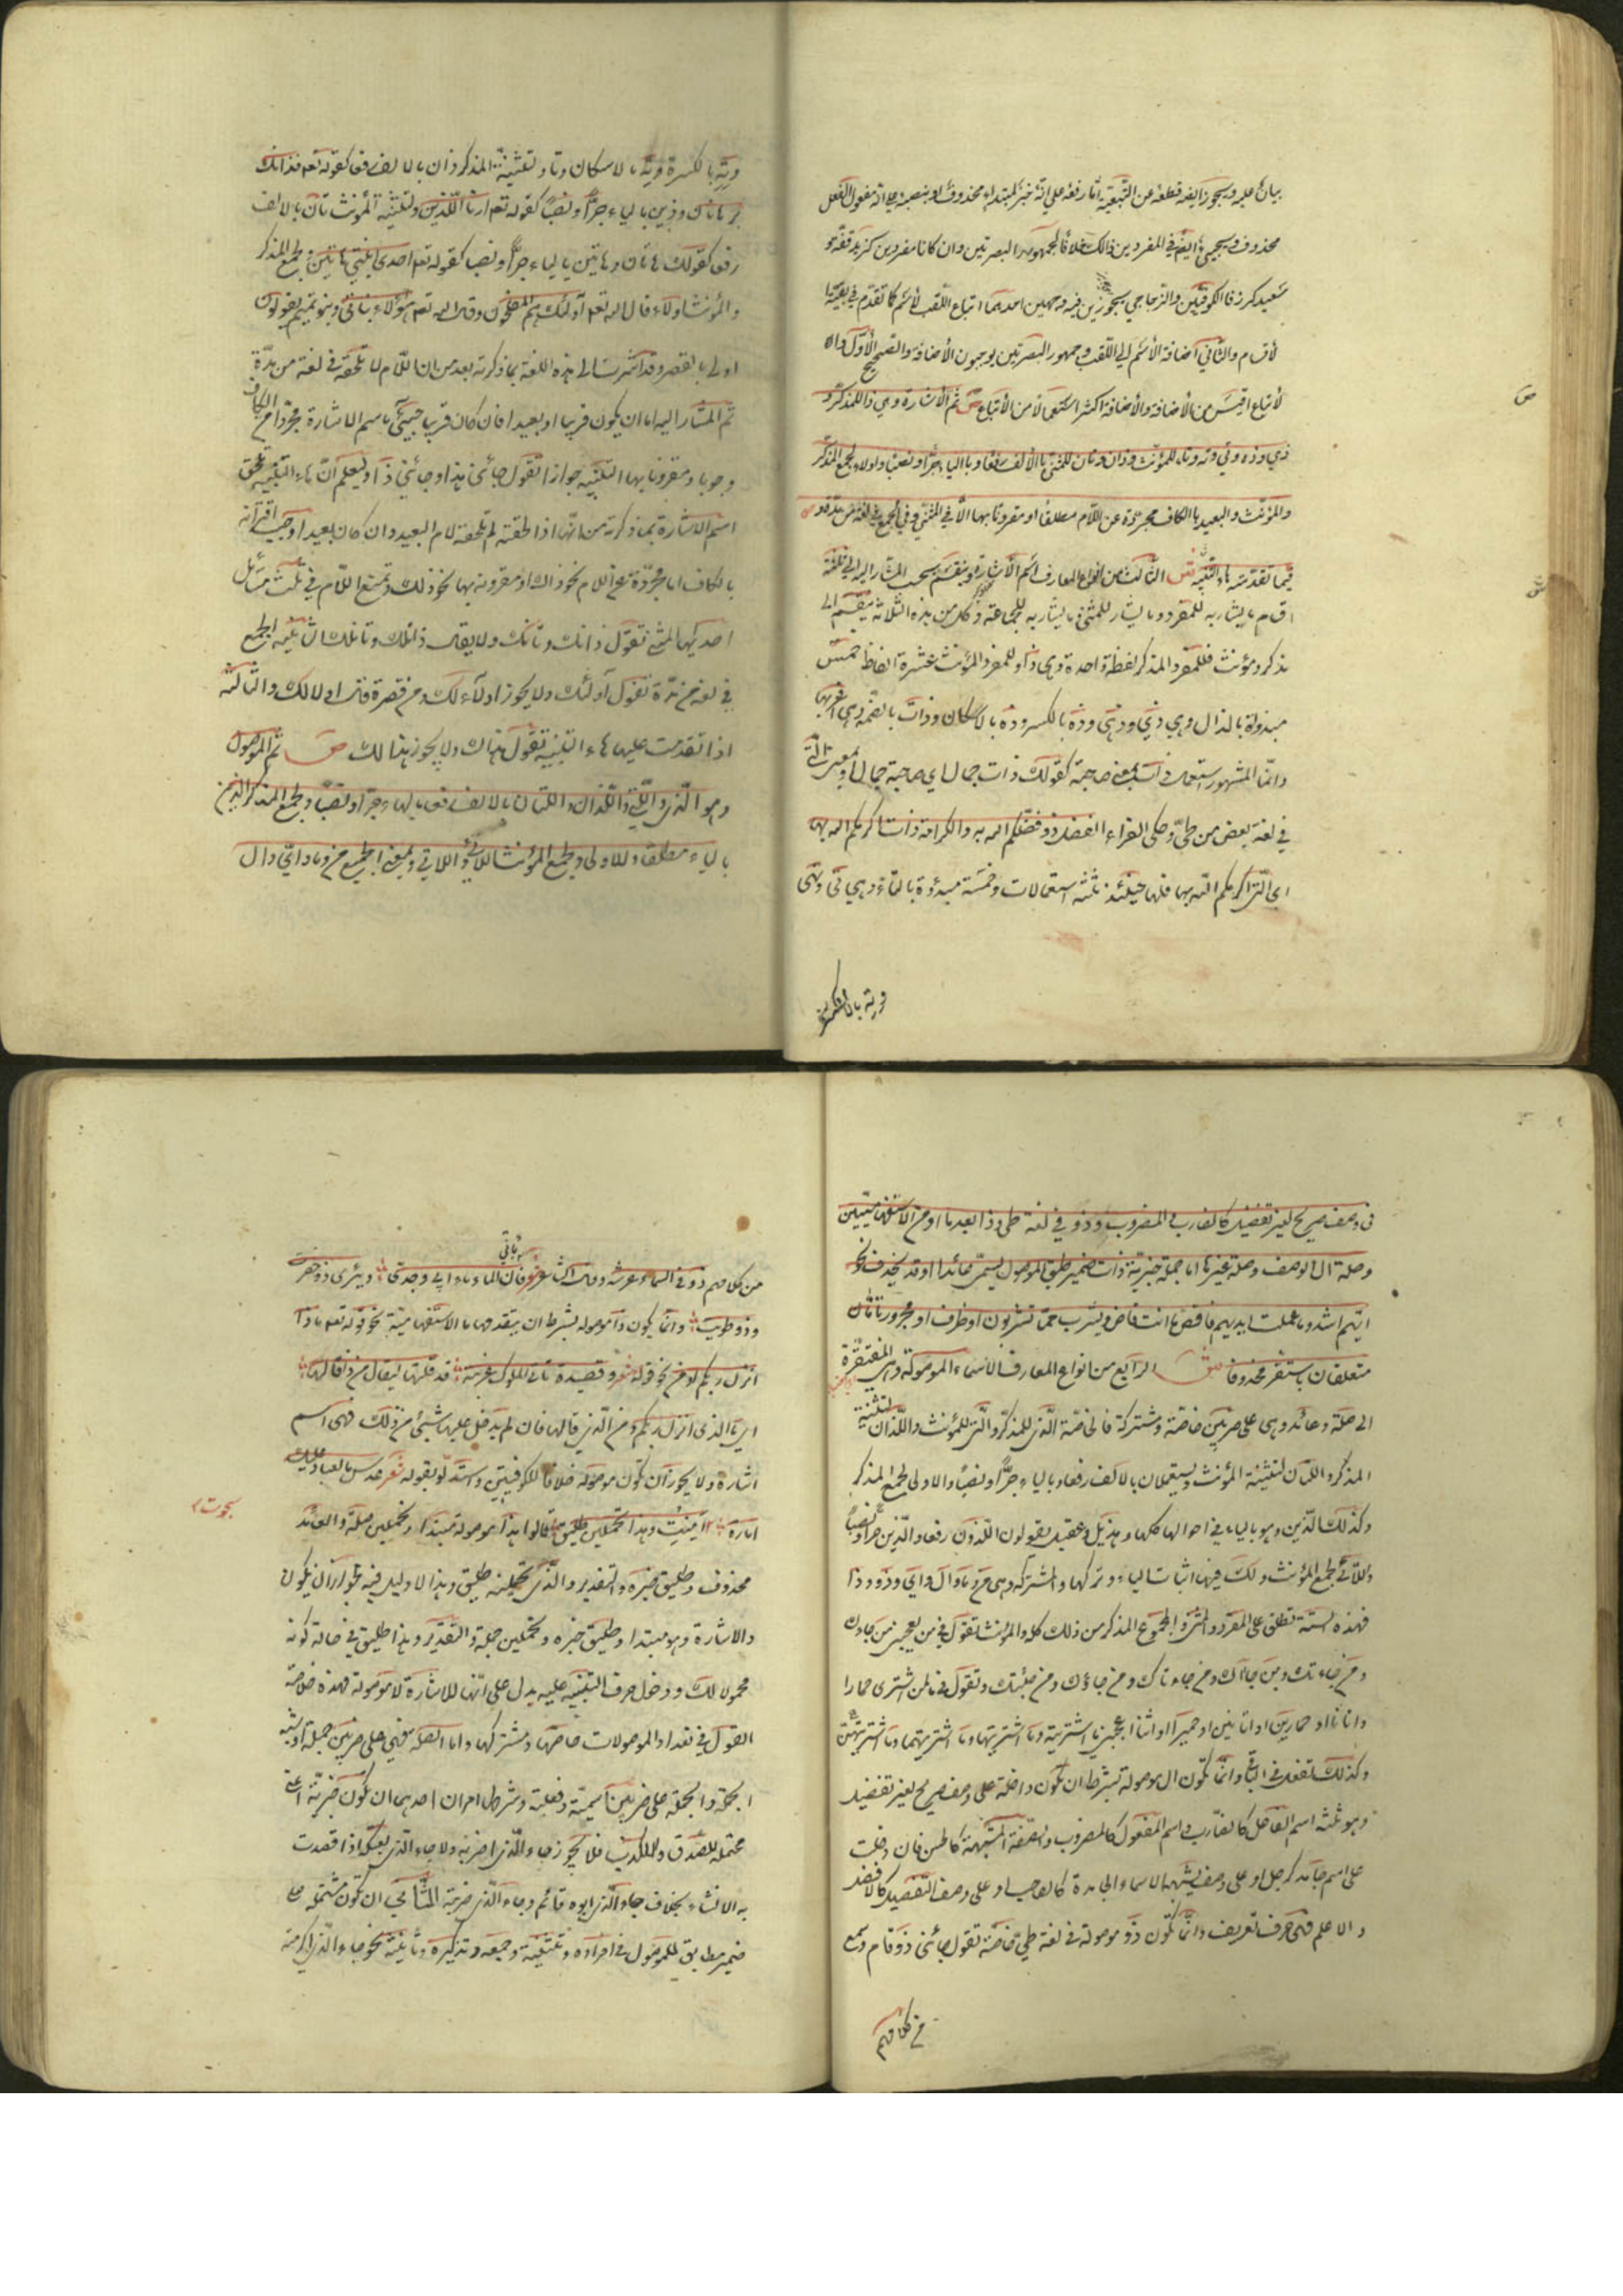 بيان عليه ويجوز ايضا قطعه عن التبعية اما رفعه على انه خبر لمبتداء محذوف او بنصبه على انه مفعول لفعل
محذوف ويجيء ايضا في المفردين ذلك خلافا لجمهور البصريين وان كانا مفردين كزيد قفة و
سعيد كرز فالكوفيين والزجاجي يجوزون فيه وجهين احدهما اتباع اللقب لاسم كما تقدم في بقية
لاقسام والثاني اضافة الاسم الى اللقب وجمهور البصريين يوجبون الاضافة والصحيح الاول والا
لاتباع اقيس من الاضافة والاضافة اكثر استعمالا من الاتباع ص ثم الاشارة وهي ذا للمذكر و
ص
ذي وذه وتي وته وتا للمؤنث وذان وتان للمثنى بالالف رفعا وبالياء جرا ونصبا واولاء لجمع المذكر
والمؤنث والبعيد بالكاف مجردة عن اللام مطلقا او مقرونا بها الا في المثنى وفي الجمع في لغة من مده و
فيما تقدمته هاء التنبيه ش الثالث من انواع المعارف اسم الاشارة وينقسم بحسب المشار اليه الى ثلثة
ش
اقسام ما يشار به للمفرد وما يشار للمثنى وما يشار به للجماعة وكل من هذه الثلاثة ينقسم الى
مذكر ومؤنث فللمفرد المذكر لفظة واحدة وهي ذا وللمفرد المؤنث عشرة الفاظ خمس
مبدؤة بالذال وهي ذي وذهي وذه بالكسر وذه بالاسكان وذات بالضم وهي اغربها
وانما المشهور استعمال ذات بمعنى صاحبة كقولك ذات جمال اي صاحبة جمال او بمعنى التي
في لغة بعض من طي وحكى الفراء الفضل ذو فضلكم الله به والكرامة ذات اكرمكم الله بها
اي التي اكرمكم الله بها فلها حينئذ ثلثة استعمالات وخمسة مبدؤة بالتاء وهي تي وتهي
وته بالكسرة
وته بالكسرة وته بالاسكان وتا ولتثنية المذكر ذان بالالف رفعا كقوله تع فذانك
برهانان وذين بالياء جرا ونصبا كقوله تع ارنا اللذين ولتثنية المؤنث تان بالالف
رفعا كقولك هاتان وهاتين بالياء جرا ونصبا كقوله تع احدى ابنتي هاتين ولجمع المذكر
والمؤنث اولاء قال الله تع اولئك هم المفلحون وقال الله تع هؤلاء بناتي وبنو تميم يقولون
اولى بالقصر وقد اشرت الى هذه اللغة بما ذكرته بعد من ان اللام لا تلحقه في لغة من مده
ثم المشار اليه اما ان يكون قريبا او بعيدا فان كان قريبا جيئ باسم الاشارة مجردا من الكاف
وجوبا ومقرونا بها التنبيه جوازا تقول جائني هذا وجائني ذا وليعلم ان هاء التنبيه تلحق
اسم الاشارة بما ذكرته من انها اذا لحقته لم تلحقه لام البعيد وان كان بعيدا وجب اقترانه
بالكاف اما مجردة عن اللام نحو ذاك او مقرونة بها نحو ذلك وتمتنع اللام في ثلث مسائل
احديها المثنى تقول ذانك وتانك ولا يقال ذانلك وتانلك الثانية الجمع
في لغة من مده تقول اولئك ولا يجوز اولآءلك ومن قصره قال اولالك والثالثة
اذا تقدمت عليها هاء التنبيه تقول هذاك ولا يجوز هذالك ص ثم الموصول
وهو الذي والتي واللذان واللتان بالالف رفعا وبالياء جرا ونصبا ولجمع المذكر الذين
بالياء مطلقا والاولى ولجمع المؤنث اللائي واللاتي وبمعنى الجميع من وما واي وال
في وصف صريح لغير تفضيل كالضارب والمضروب وذو في لغة طي وذا بعد ما او من الاستفهاميتين
وصلة ال الوصف وصلة غيرها اما جملة خبرية ذات ضمير طبق الموصول يسمى عائدا وقد يحذف نحو
ايهم اشد وما عملت ايديهم فاقض ما انت قاض ويشرب مما تشربون او ظرف او مجرور تامان
متعلقان باستقر محذوفا ش الرابع من انواع المعارف الاسماء الموصولة وهي المفتقرة
الى صلة وعائد وهي على ضربين خاصة ومشتركة فالخاصة الذي للمذكر والتي للمؤنث واللذان لتثنية
المذكر واللتان لتثنية المؤنث ويستعملان بالالف رفعا وبالياء جرا ونصبا والاولى لجمع المذكر
وكذلك الذين وهو بالياء في احوالها كلها وهذيل وعقيل يقولون اللذون رفعا والذين جرا ونصبا
واللائي لجمع المؤنث ولك فيها اثبات الياء وتركها والمشتركة وهي من وما وال واي وذو وذا
فهذه الستة تطلق على المفرد والمثنى والمجموع المذكر من ذلك كله والمؤنث تقول في من يعجبني من جاءك
ومن جاءتك ومن جاآك ومن جاءتاك ومن جاؤك ومن جئنك وتقول في ما لمن اشترى حمارا
واتانا او حمارين او اتانين او حميرا او اتنا اعجبني ما اشتريته وما اشتريتها وما اشتريتهما وما اشتريتهن
وكذلك تفعل في البواقي وانما تكون ال موصولة بشرط ان تكون داخلة على وصف صريح لغير تفضيل
وهو ثلثة اسم الفاعل كالضارب واسم المفعول كالمضروب والصفة المشبهة كالحسن فان دخلت
على اسم جامد كرجل او على وصف يشبه الاسماء الجامدة كالصاحب او على وصف التفضيل كالافضل
والاعلم فهي حرف تعريف وانما تكون ذو موصولة في لغة طي خاصة تقول جائني ذو قام وسمع
من كلامهم
من كلامهم ذو في السماء عرشه وقال الشاعر فان الماء ماء ابي وجدي وبئري ذو حفرت
وذو طويت وانما يكون ذا موصولة بشرط ان يتقدمها ما الاستفهامية نحو قوله تع ماذا
انزل ربكم او من نحو قوله شعر وقصيدة تأتي الملوك غريبة قد قلتها ليقال من ذا قالها
اي ما الذي انزل ربكم ومن الذي قالها فان لم يدخل عليها شيئ من ذلك فهي اسم
اشارة ولا يجوز ان تكون موصولة خلافا للكوفيين واستدلوا بقوله شعر عدس ما لعباد عليك
امارة امنت وهذا تحملين طليق قالوا هذا موصولة مبتدا وتحملين صلة والعائد
محذوف وطليق خبره والتقدير والذي تحملينه طليق وهذا لا دليل فيه لجواز ان يكون
ذا للاشارة وهو مبتدا وطليق خبره وتحملين جملة والتقدير وهذا طليق في حالة كونه
محمولا لك ودخول حرف التنبيه عليه يدل على انها للاشارة لا موصولة فهذه خلاصة
القول في تعداد الموصولات خاصها ومشتركها واما الصلة فهي على ضربين جملة وشبه
الجملة والجملة على ضربين اسمية وفعلية وشرطها امران احدهما ان تكون خبرية اعني
محتملة للصدق والكذب فلا يجوز جاء الذي اضربه ولا جاء الذي بعتكه اذا قصدت
به الانشاء بخلاف جاء الذي ابوه قائم وجاء الذي ضربته الثاني ان تكون مشتملة على
ضمير مطابق للموصول في افراده وتثنيته وجمعه وتذكيره وتأنيثه نحو جاء الذي اكرمته